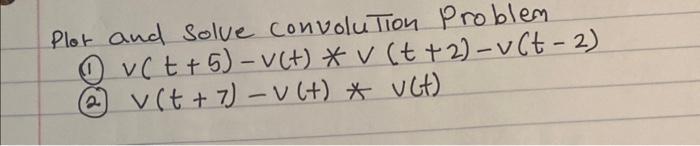 Plot and Solve convoluTion Problem
① v(t+5)-v(t) * v(t+2)-v(t-2)
② v(t+7)-v(t) * v(t)